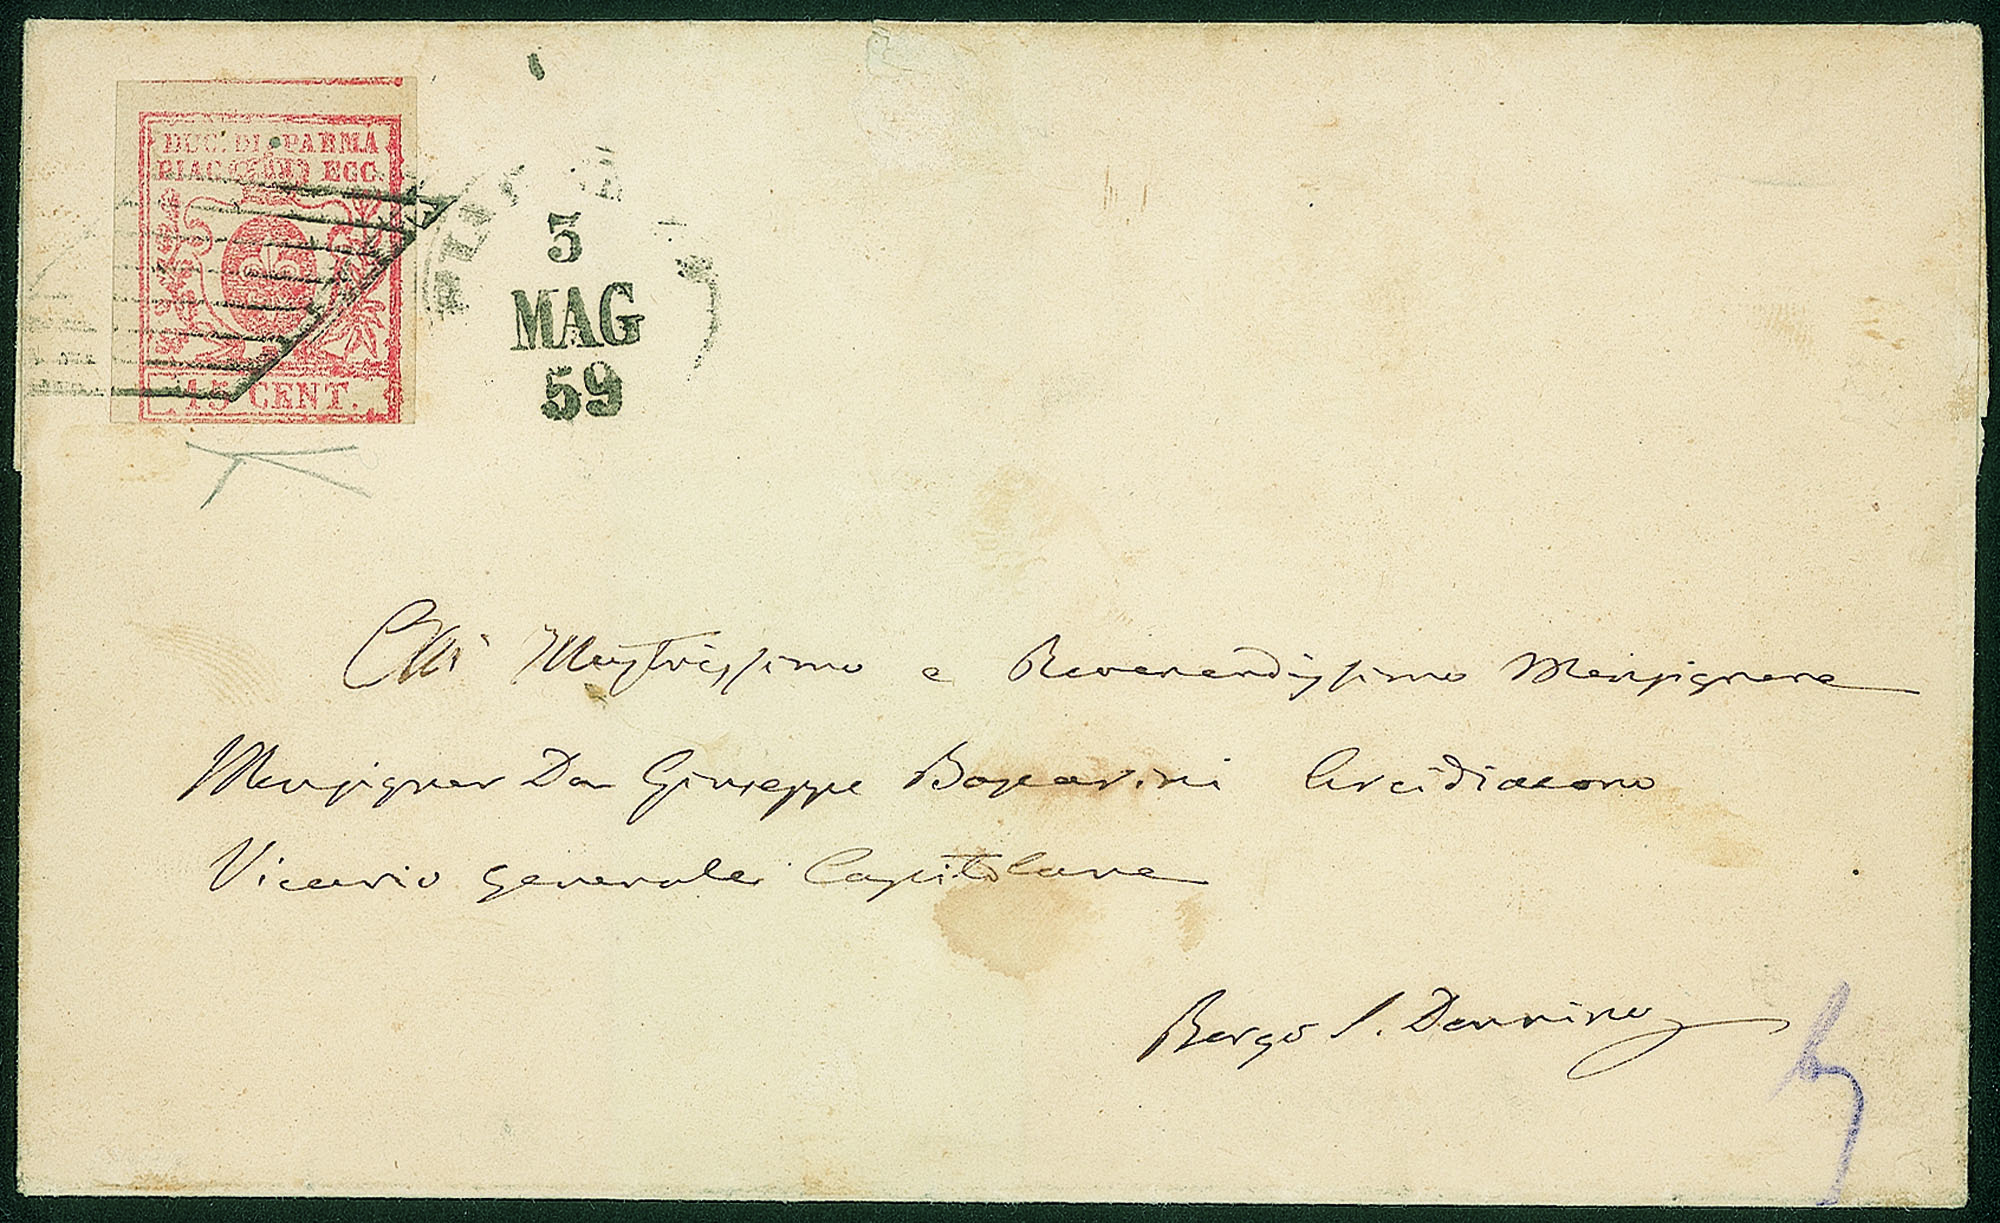 DUC. DI PARMA
PIAC. ECC.
15 CENT.
PIACENZA
5
MAG
59
All' Illustrissimo e Reverendissimo Monsignore
Monsignor Don Giuseppe Boscarini Arcidiacono
Vicario Generale Capitolare
Borgo S. Donnino